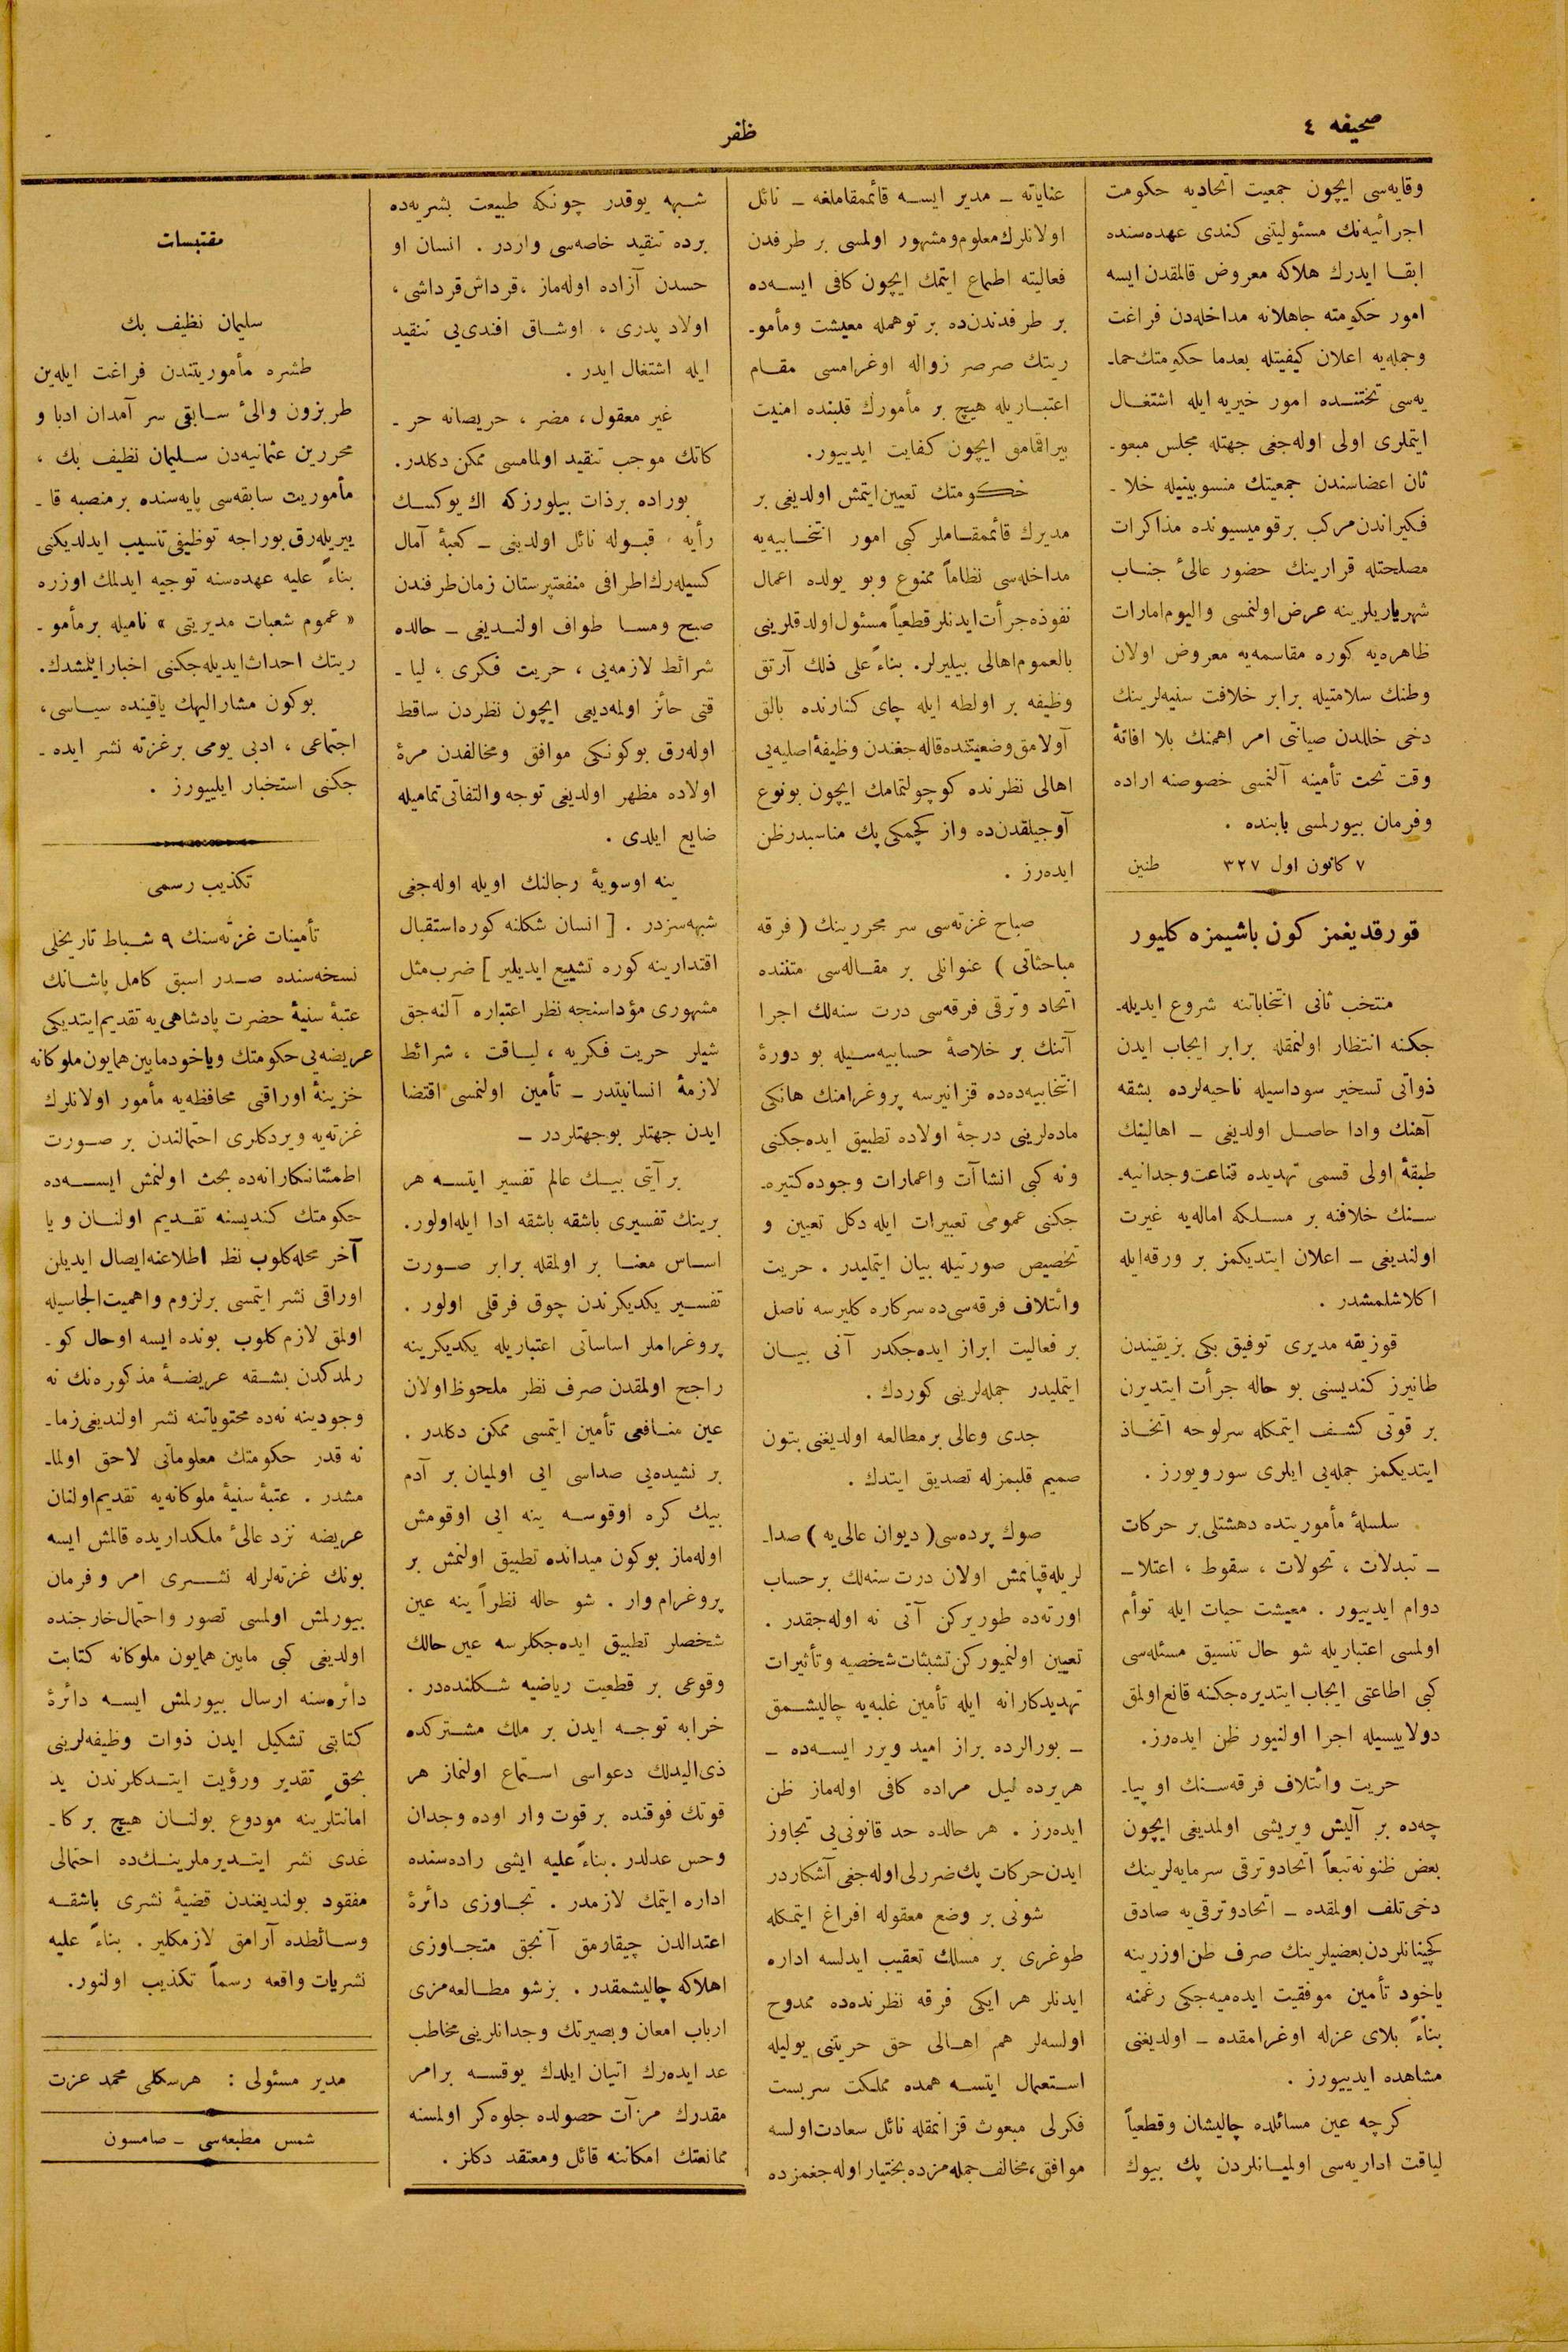 صحیفه ٤
ظفر
وقایه‌سی ایچون جمعیت اتحادیه حکومت
اجرائیه‌نك مسئولیتنی کندی عهده‌سنده
ابقا ایدرك هلاکه معروض قالمقدن ایسه
امور حکومته جاهلانه مداخله‌دن فراغت
وجمله‌یه اعلان کیفیتله بعدما حکومتك حما-
یه‌سی تحتنده امور خیریه ایله اشتغال
ایتملری اولی اوله‌جغی جهتله مجلس مبعو-
ثان اعضاسندن جمعیتك منسوبینیله خلا-
فکیراندن مرکب برقومیسیونده مذاکرات
مصلحتله قرارینك حضور عالیٔ جناب
شهریاریلرینه عرض اولنمسی والیوم امارات
ظاهره‌یه کوره مقاسمه‌یه معروض اولان
وطنك سلامتیله برابر خلافت سنیه‌لرینك
دخی خللدن صیانتی امر اهمنك بلا افاتهٔ
وقت تحت تأمینه آلنمسی خصوصنه اراده
وفرمان بیورلمسی بابنده .
۷ کانون اول ۳۲۷ طنین
قورقدیغمز کون باشیمزه کلیور
منتخب ثانی انتخاباتنه شروع ایدیله-
جکنه انتظار اولنمقله برابر ایجاب ایدن
ذواتی تسخیر سوداسیله ناحیه‌لرده بشقه
آهنك وادا حاصل اولدیغی ــ اهالینك
طبقهٔ اولی قسمی تهدیده قناعت وجدانیه-
سنك خلافنه بر مسلکه اماله‌یه غیرت
اولندیغی ــ اعلان ایتدیکمز بر ورقه‌ایله
اکلاشلمشدر .
قوزیقه مدیری توفیق بکی بزیقیندن
طانیرز کندیسنی بو حاله جرأت ایتدیرن
بر قوتی کشف ایتمکله سرلوحه اتخاذ
ایتدیکمز جمله‌یی ایلری سورویورز .
سلسلهٔ مأموریتده دهشتلی بر حرکات
ــ تبدلات ، تحولات ، سقوط ، اعتلا ــ
دوام ایدییور . معیشت حیات ایله توأم
اولمسی اعتباریله شو حال تنسیق مسئله‌سی
کبی اطاعتی ایجاب ایتدیره‌جکنه قانع اولمق
دولاییسیله اجرا اولنیور ظن ایده‌رز.
حریت وائتلاف فرقه‌سنك او پیا-
چه‌ده بر آلیش ویریشی اولمدیغی ایچون
بعض ظنونه تبعاً اتحادوترقی سرمایه‌لرینك
دخی تلف اولمقده ــ اتحادوترقی‌یه صادق
کچینانلردن بعضیلرینك صرف ظن اوزرینه
یاخود تأمین موفقیت ایده‌میه‌جکی رغمنه
بناءً بلای عزله اوغرامقده ــ اولدیغنی
مشاهده ایدییورز .
کرچه عین مسائلده چالیشان وقطعیاً
لیاقت اداریه‌سی اولمیانلردن پك بیوك
عنایاته ــ مدیر ایسه قائممقاملغه ــ نائل
اولانلرك معلوم ومشهور اولمسی بر طرفدن
فعالیته اطماع ایتمك ایچون کافی ایسه‌ده
بر طرفدندن‌ده بر توهمله معیشت ومأمو-
ریتك صرصر زواله اوغرامسی مقام
اعتباریله هیچ بر مأمورك قلبنده امنیت
بیراقمامق ایچون کفایت ایدییور.
حکومتك تعیین ایتمش اولدیغی بر
مدیرك قائممقاملر کبی امور انتخابیه‌یه
مداخله‌سی نظاماً ممنوع وبو یولده اعمال
نفوذه جرأت ایدنلر قطعیاً مسئول اولدقلرینی
بالعموم اهالی بیلیرلر. بناءً علی ذلك آرتق
وظیفه بر اولطه ایله چای کنارنده بالق
آولامق وضعیتنده قاله‌جغندن وظیفهٔ اصلیه‌یی
اهالی نظرنده کوچولتمامك ایچون بونوع
آوجیلقدن‌ده واز کچمکی پك مناسبدر ظن
ایده‌رز .
صباح غزته‌سی سر محررینك ( فرقه
مباحثاتی ) عنوانلی بر مقاله‌سی متننده
اتحاد وترقی فرقه‌سی درت سنه‌لك اجرا
آتنك بر خلاصهٔ حسابیه‌سیله بو دورهٔ
انتخابیه‌ده‌ده قزانیرسه پروغرامنك هانکی
ماده‌لرینی درجهٔ اولاده تطبیق ایده‌جکنی
ونه کبی انشاآت واعمارات وجوده کتیره-
جکنی عمومی تعبیرات ایله دکل تعیین و
تخصیص صورتیله بیان ایتملیدر . حریت
وائتلاف فرقه‌سی‌ده سرکاره کلیرسه ناصل
بر فعالیت ابراز ایده‌جکدر آنی بیان
ایتملیدر جمله‌لرینی کوردك .
جدی وعالی بر مطالعه اولدیغنی بتون
صمیم قلبمزله تصدیق ایتدك .
صوك پرده‌سی ( دیوان عالی‌یه ) صدا-
لریله قپانمش اولان درت سنه‌لك بر حساب
اورته‌ده طوریرکن آتی نه اوله‌جقدر .
تعیین اولنمیورکن تشبثات شخصیه وتأثیرات
تهدیدکارانه ایله تأمین غلبه‌یه چالیشمق
ــ بورالرده براز امید ویرر ایسه‌ده ــ
هریرده نیل مراده کافی اوله‌ماز ظن
ایده‌رز . هر حالده حد قانونی‌یی تجاوز
ایدن حرکات پك ضررلی اوله‌جغی آشکاردر
شونی بر وضع معقوله افراغ ایتمکله
طوغری بر مسلك تعقیب ایدلسه اداره
ایدنلر هر ایکی فرقه نظرنده‌ده ممدوح
اولسه‌لر هم اهالی حق حریتنی یولیله
استعمال ایتسه همده مملکت سربست
فکرلی مبعوث قزانمقله نائل سعادت اولسه
موافق، مخالف جمله‌مزده بختیار اوله‌جغمزده
شبهه یوقدر چونکه طبیعت بشریه‌ده
برده تنقید خاصه‌سی واردر . انسان او
حسدن آزاده اوله‌ماز ، قرداش قرداشی ،
اولاد پدری ، اوشاق افندی‌یی تنقید
ایله اشتغال ایدر .
غیر معقول ، مضر ، حریصانه حر-
کاتك موجب تنقید اولمامسی ممکن دکلدر.
بوراده برذات بیلورزکه اك یوکسك
رأیه قبوله نائل اولدیغی ــ کعبهٔ آمال
کسیله‌رك اطرافی منفعتپرستان زمان طرفندن
صبح ومسا طواف اولندیغی ــ حالده
شرائط لازمه‌یی ، حریت فکری ، لیا-
قتی حائز اولمه‌دیغی ایچون نظردن ساقط
اوله‌رق بوکونکی موافق ومخالفدن مرهٔ
اولاده مظهر اولدیغی توجه والتفاتی تمامیله
ضایع ایلدی .
ینه اوسویهٔ رجالنك اویله اوله‌جغی
شبهه‌سزدر . [ انسان شکلنه کوره استقبال
اقتدارینه کوره تشییع ایدیلیر ] ضرب مثل
مشهوری مؤداسنجه نظر اعتباره آلنه‌جق
شیلر حریت فکریه ، لیاقت ، شرائط
لازمهٔ انسانیتدر ــ تأمین اولنمسی اقتضا
ایدن جهتلر بو جهتلردر ــ
بر آیتی بیك عالم تفسیر ایتسه هر
برینك تفسیری باشقه باشقه ادا ایله اولور.
اساس معنا بر اولمقله برابر صورت
تفسیر یکدیکرندن چوق فرقلی اولور .
پروغراملر اساساتی اعتباریله یکدیکرینه
راجح اولمقدن صرف نظر ملحوظ اولان
عین منافعی تأمین ایتمسی ممکن دکلدر .
بر نشیده‌یی صداسی ایی اولمیان بر آدم
بیك کره اوقوسه ینه ایی اوقومش
اوله‌ماز بوکون میدانده تطبیق اولنمش بر
پروغرام وار . شو حاله نظراً ینه عین
شخصلر تطبیق ایده‌جکلرسه عین حالك
وقوعی بر قطعیت ریاضیه شکلنده‌در .
خرابه توجه ایدن بر ملك مشترکده
ذی‌الیدلك دعواسی استماع اولنماز هر
قوتك فوقنده بر قوت وار اوده وجدان
وحس عدلدر. بناءً علیه ایشی راده‌سنده
اداره ایتمك لازمدر . تجاوزی دائرهٔ
اعتدالدن چیقارمق آنجق متجاوزی
اهلاکه چالیشمقدر . بزشو مطالعه‌مزی
ارباب امعان وبصیرتك وجدانلرینی مخاطب
عد ایده‌رك اتیان ایلدك یوقسه برامر
مقدرك مرآت حصولده جلوه‌کر اولمسنه
ممانعتك امکاننه قائل ومعتقد دکلز .
مقتبسات
سلیمان نظیف بك
طشره مأموریتندن فراغت ایله‌ین
طربزون والیٔ سابقی سر آمدان ادبا و
محررین عثمانیه‌دن سلیمان نظیف بك ،
مأموریت سابقه‌سی پایه‌سنده بر منصبه قا-
ییریله‌رق بوراجه توظیفی تنسیب ایدلدیکنی
بناءً علیه عهده‌سنه توجیه ایدلمك اوزره
« عموم شعبات مدیریتی » نامیله بر مأمو-
ریتك احداث ایدیله‌جکنی اخبار ایتمشدك.
بوکون مشارالیهك یاقینده سیاسی،
اجتماعی ، ادبی یومی بر غزته نشر ایده-
جکنی استخبار ایلییورز .
تکذیب رسمی
تأمینات غزته‌سنك ۹ شباط تاریخلی
نسخه‌سنده صدر اسبق کامل پاشانك
عتبهٔ سنیهٔ حضرت پادشاهی‌یه تقدیم ایتدیکی
عریضه‌یی حکومتك ویاخود مابین همایون ملوکانه
خزینهٔ اوراقنی محافظه‌یه مأمور اولانلرك
غزته‌یه ویردکلری احتمالندن بر صورت
اطمئنانکارانه‌ده بحث اولنمش ایسه‌ده
حکومتك کندیسنه تقدیم اولنان ویا
آخر محله کلوب نظر اطلاعنه ایصال ایدیلن
اوراقی نشر ایتمسی برلزوم واهمیت الجاسیله
اولمق لازم کلوب بونده ایسه اوحال کو-
رلمدکدن بشقه عریضهٔ مذکوره‌نك نه
وجودینه نه‌ده محتویاتنه نشر اولندیغی زما-
نه قدر حکومتك معلوماتی لاحق اولما-
مشدر . عتبهٔ سنیهٔ ملوکانه‌یه تقدیم اولنان
عریضه نزد عالیٔ ملکداریده قالمش ایسه
بونك غزته‌لرله نشری امر وفرمان
بیورلمش اولمسی تصور واحتمال خارجنده
اولدیغی کبی مابین همایون ملوکانه کتابت
دائره‌سنه ارسال بیورلمش ایسه دائرهٔ
کتابتی تشکیل ایدن ذوات وظیفه‌لرینی
بحق تقدیر ورؤیت ایتدکلرندن ید
امانتلرینه مودوع بولنان هیچ بر کا-
غدی نشر ایتدیرملرینك‌ده احتمالی
مفقود بولندیغندن قضیهٔ نشری باشقه
وسائطده آرامق لازمکلیر . بناءً علیه
نشریات واقعه رسماً تکذیب اولنور.
مدیر مسئولی : هرسکلی محمد عزت
شمس مطبعه‌سی ــ صامسون